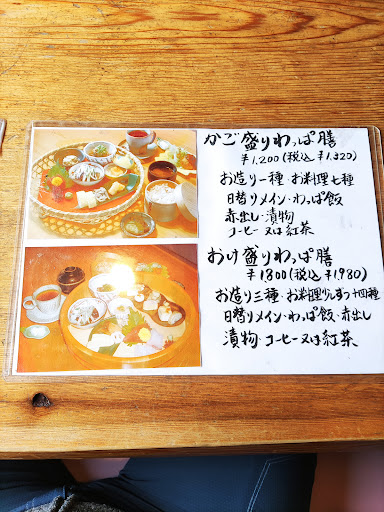 かご盛りわっぱ膳
¥1,200(税込¥1,320)
お造り一種・お料理七種
日替りメイン・わっぱ飯
赤出し・漬物
コーヒー又は紅茶
おけ盛りわっぱ膳
¥1800(税込¥1,980)
お造り三種・お料理少しずつ十四種
日替りメイン・わっぱ飯・赤出し
漬物・コーヒー又は紅茶